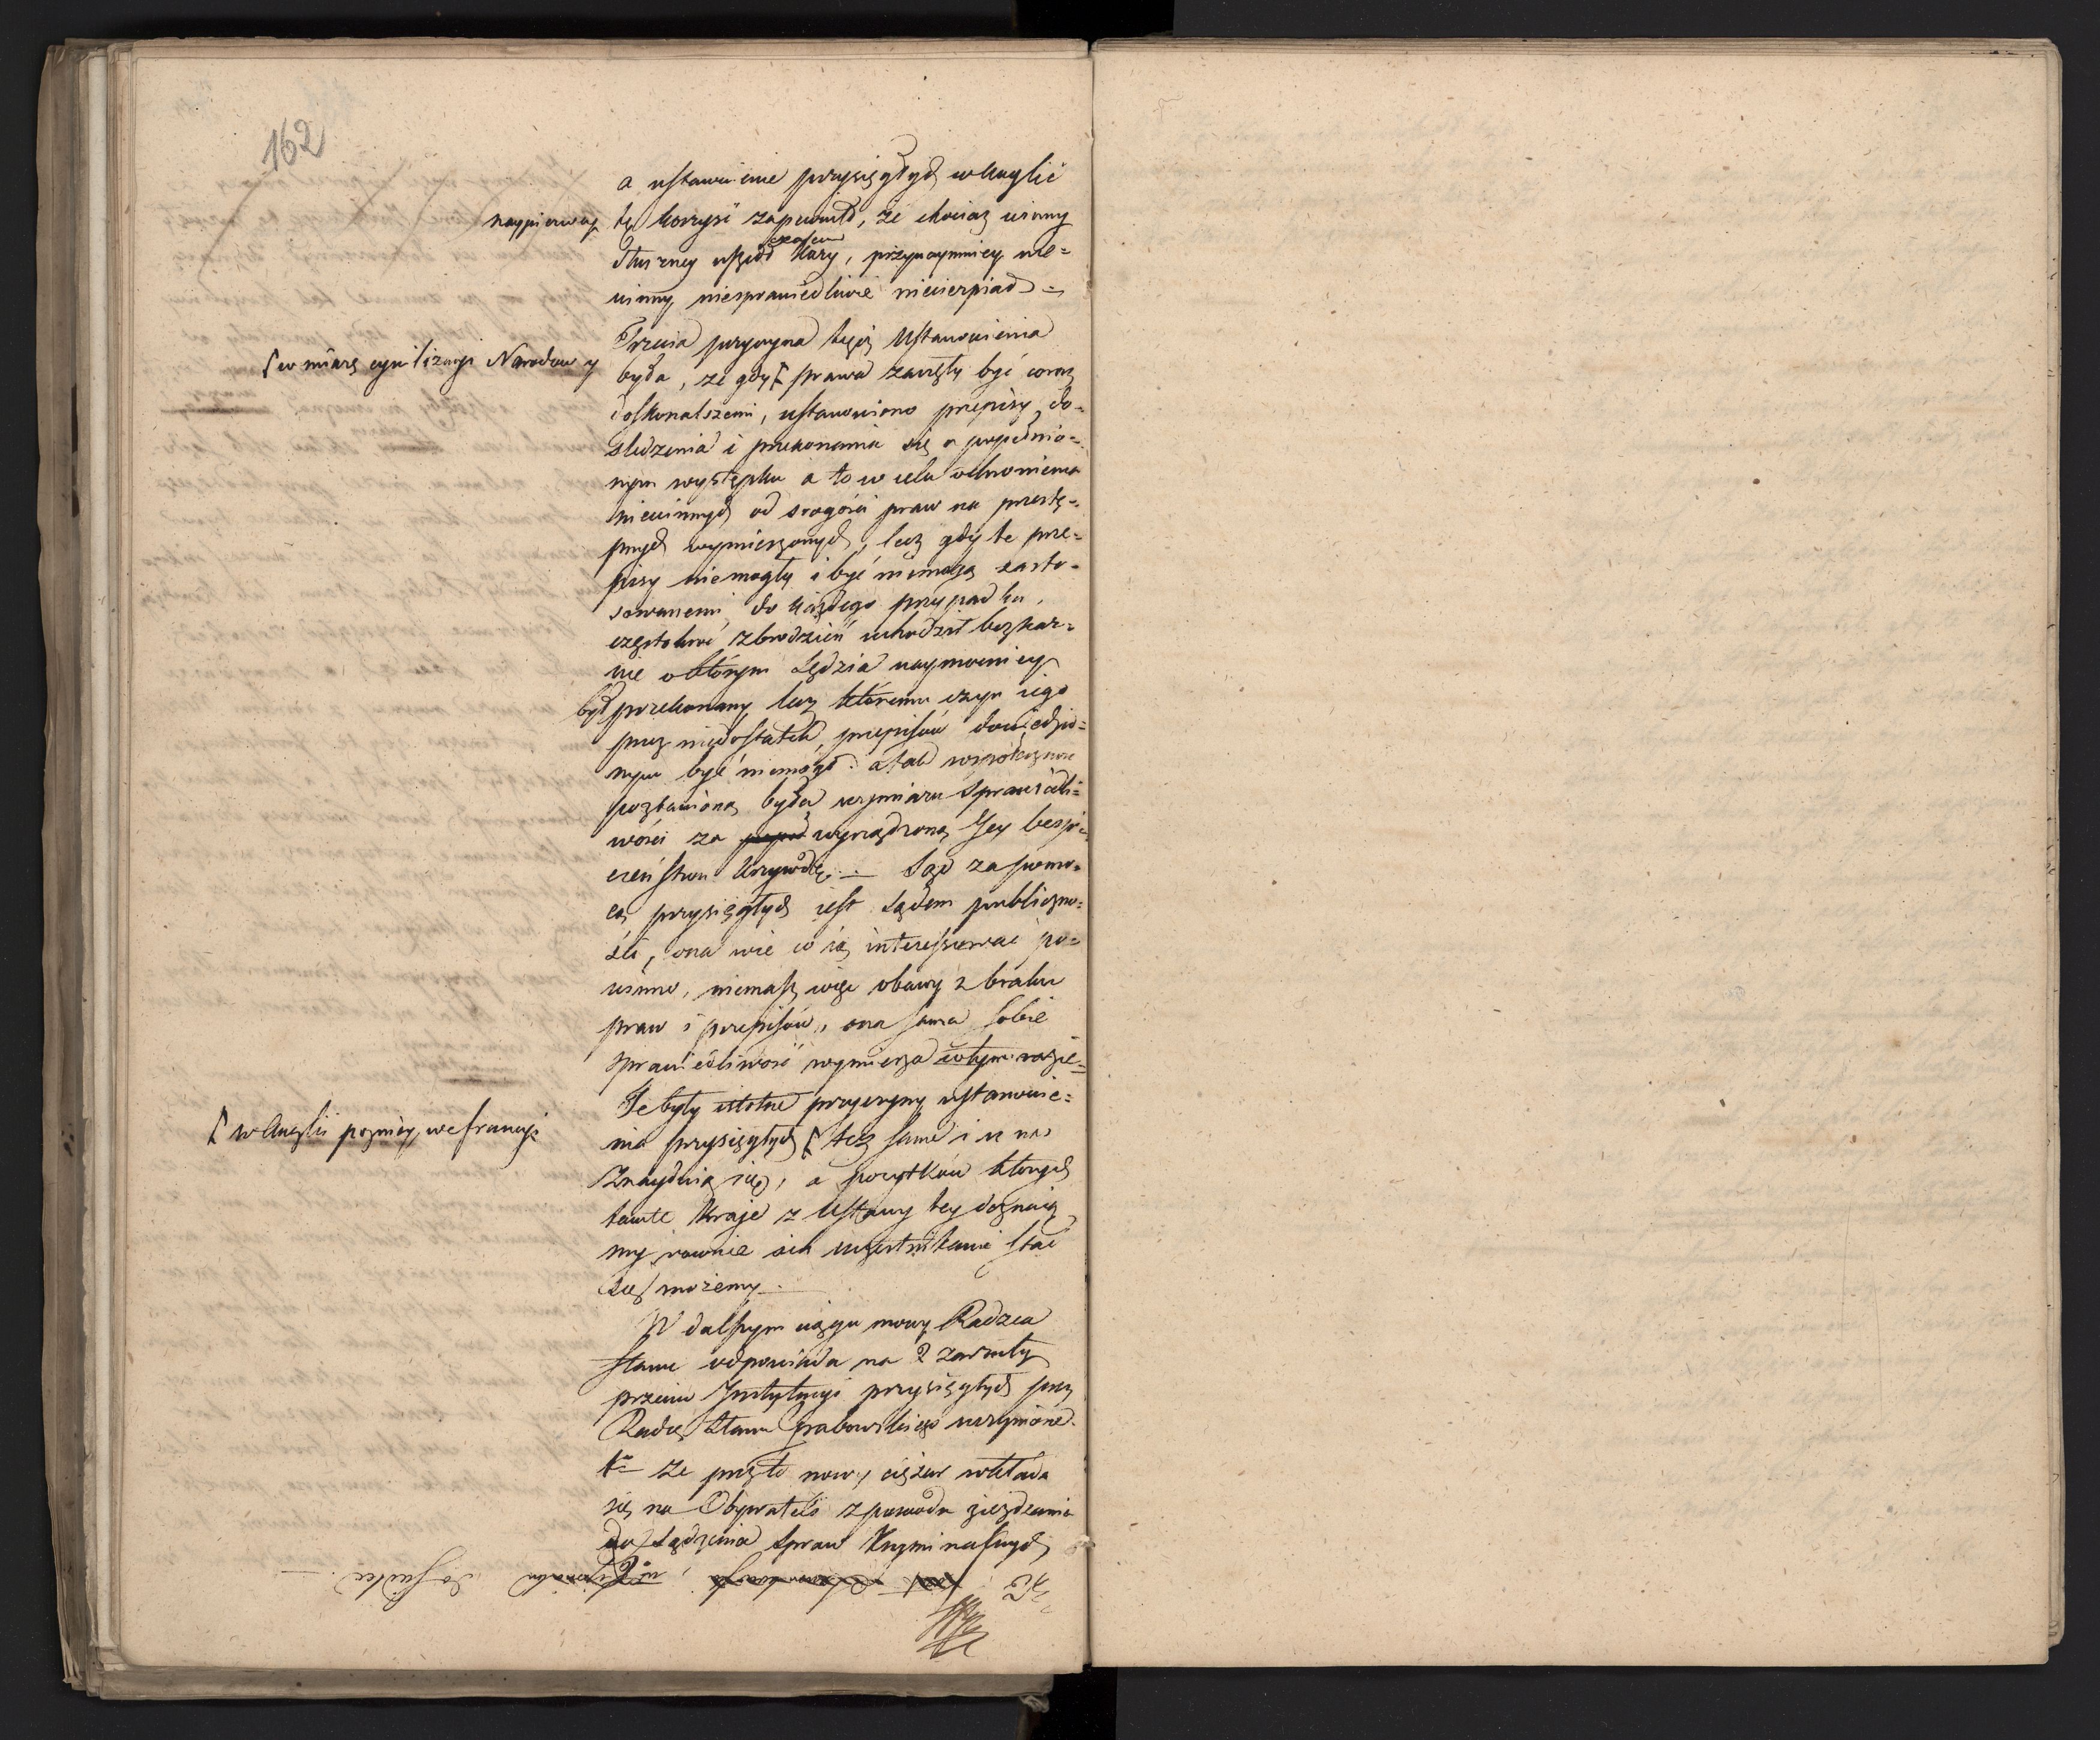 162
a ustanowienie przysięgłych w Anglii
naypierwey tę korzyść zapewniło, że chociaż winny
słuszney uszedł czasem kary, przynaymniey nie=
winny niesprawiedliwie niecierpiał =
Trzecia przyczyna tegoż Ustanowienia
⌈ w miarę cywilizacyi Narodów
była, że gdy ⌈ prawa zaczęły być coraz
doskonalszemi, ustanowiono przepisy do=
śledzenia i przekonania się o popełnio=
nym występku a to w celu ochronienia
niewinnych od srogości praw na przestę=
pnych wymierzonych, lecz gdy te prze=
pisy niemogły i być niemogą zasto=
sowanemi do każdego przypadku,
częstokroć zbrodzień uchodził bezkar=
nie o którym Sędzia naymocniey
był przekonany lecz któremu czyn iego
przez niedostatek przepisów dowiedzio=
nym być niemógł. a tak społeczność
pozbawioną była wymiaru Sprawiedli=
wości za wyrządzoną Jey bespie=
czeństwu krzywdę. — Sąd za pomo=
cą przysięgłych iest Sądem publiczno=
ści, ona wie co ią interessować po=
winno, niemasz więc obawy z braku
praw i przepisów, ona sama sobie
sprawiedliwość wymierza w tym razie =
Te były istotne przyczyny ustanowie=
⌈ w Anglii pozniey we francyi
nia przysięgłych ⌈ też same i u nas
znayduią się, a pożytków których
tamte kraje z Ustawy tey doznaią
my rownie ich uczestnikami stać
się możemy. —
W dalszym ciągu mowy Radzca
Stanu odpowiada na 2 zarzuty
przeciw Instytucyi przysięgłych przez
Radcę Stanu Grabowskiego uczynione.
1° że przez to nowy ciężar wkłada
się na Obywateli z powodu ziezdzania
do Sądzenia Spraw Kryminalnych